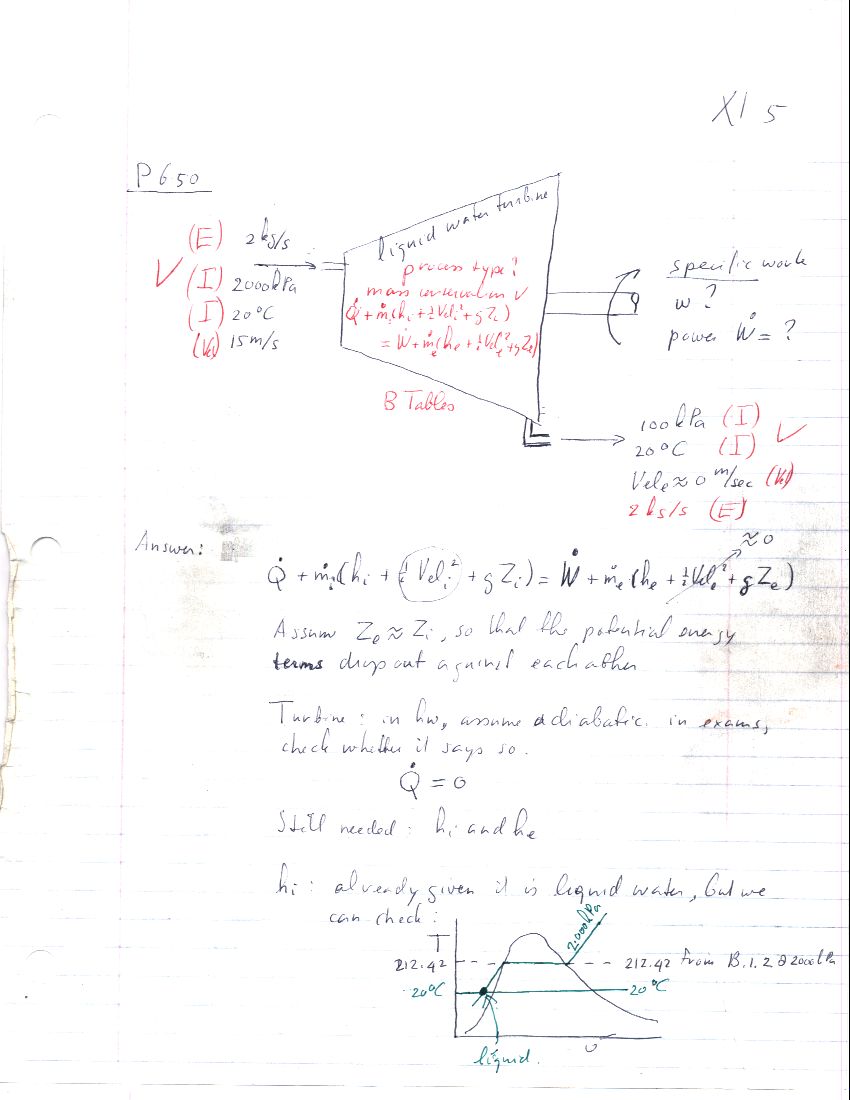 XI 5
P 6.50
(E) 2 kg/s
√ (I) 2000 kPa
(I) 20°C
(Vel) 15 m/s
liquid water turbine
process type?
mass conservation √
Q̇ + ṁᵢ(hᵢ + ½Velᵢ² + gZᵢ)
= Ẇ + ṁₑ(hₑ + ½Velₑ² + gZₑ)
B Tables
specific work
w ?
power Ẇ = ?
100 kPa (I) √
20°C (I)
Velₑ ≈ 0 m/sec (Vel)
2 kg/s (E)
Answer:
≈ 0
Q̇ + ṁᵢ(hᵢ + ½Velᵢ² + gZᵢ) = Ẇ + ṁₑ(hₑ + ½Velₑ² + gZₑ)
Assume Zₑ ≈ Zᵢ, so that the potential energy
terms drop out against each other
Turbine: in hw, assume adiabatic. in exams,
check whether it says so.
Q̇ = 0
Still needed: hᵢ and hₑ
hᵢ: already given it is liquid water, but we
can check:
T
2000kPa
212.42
212.42 from B.1.2 @ 2000kPa
20°C
20°C
υ
liquid.